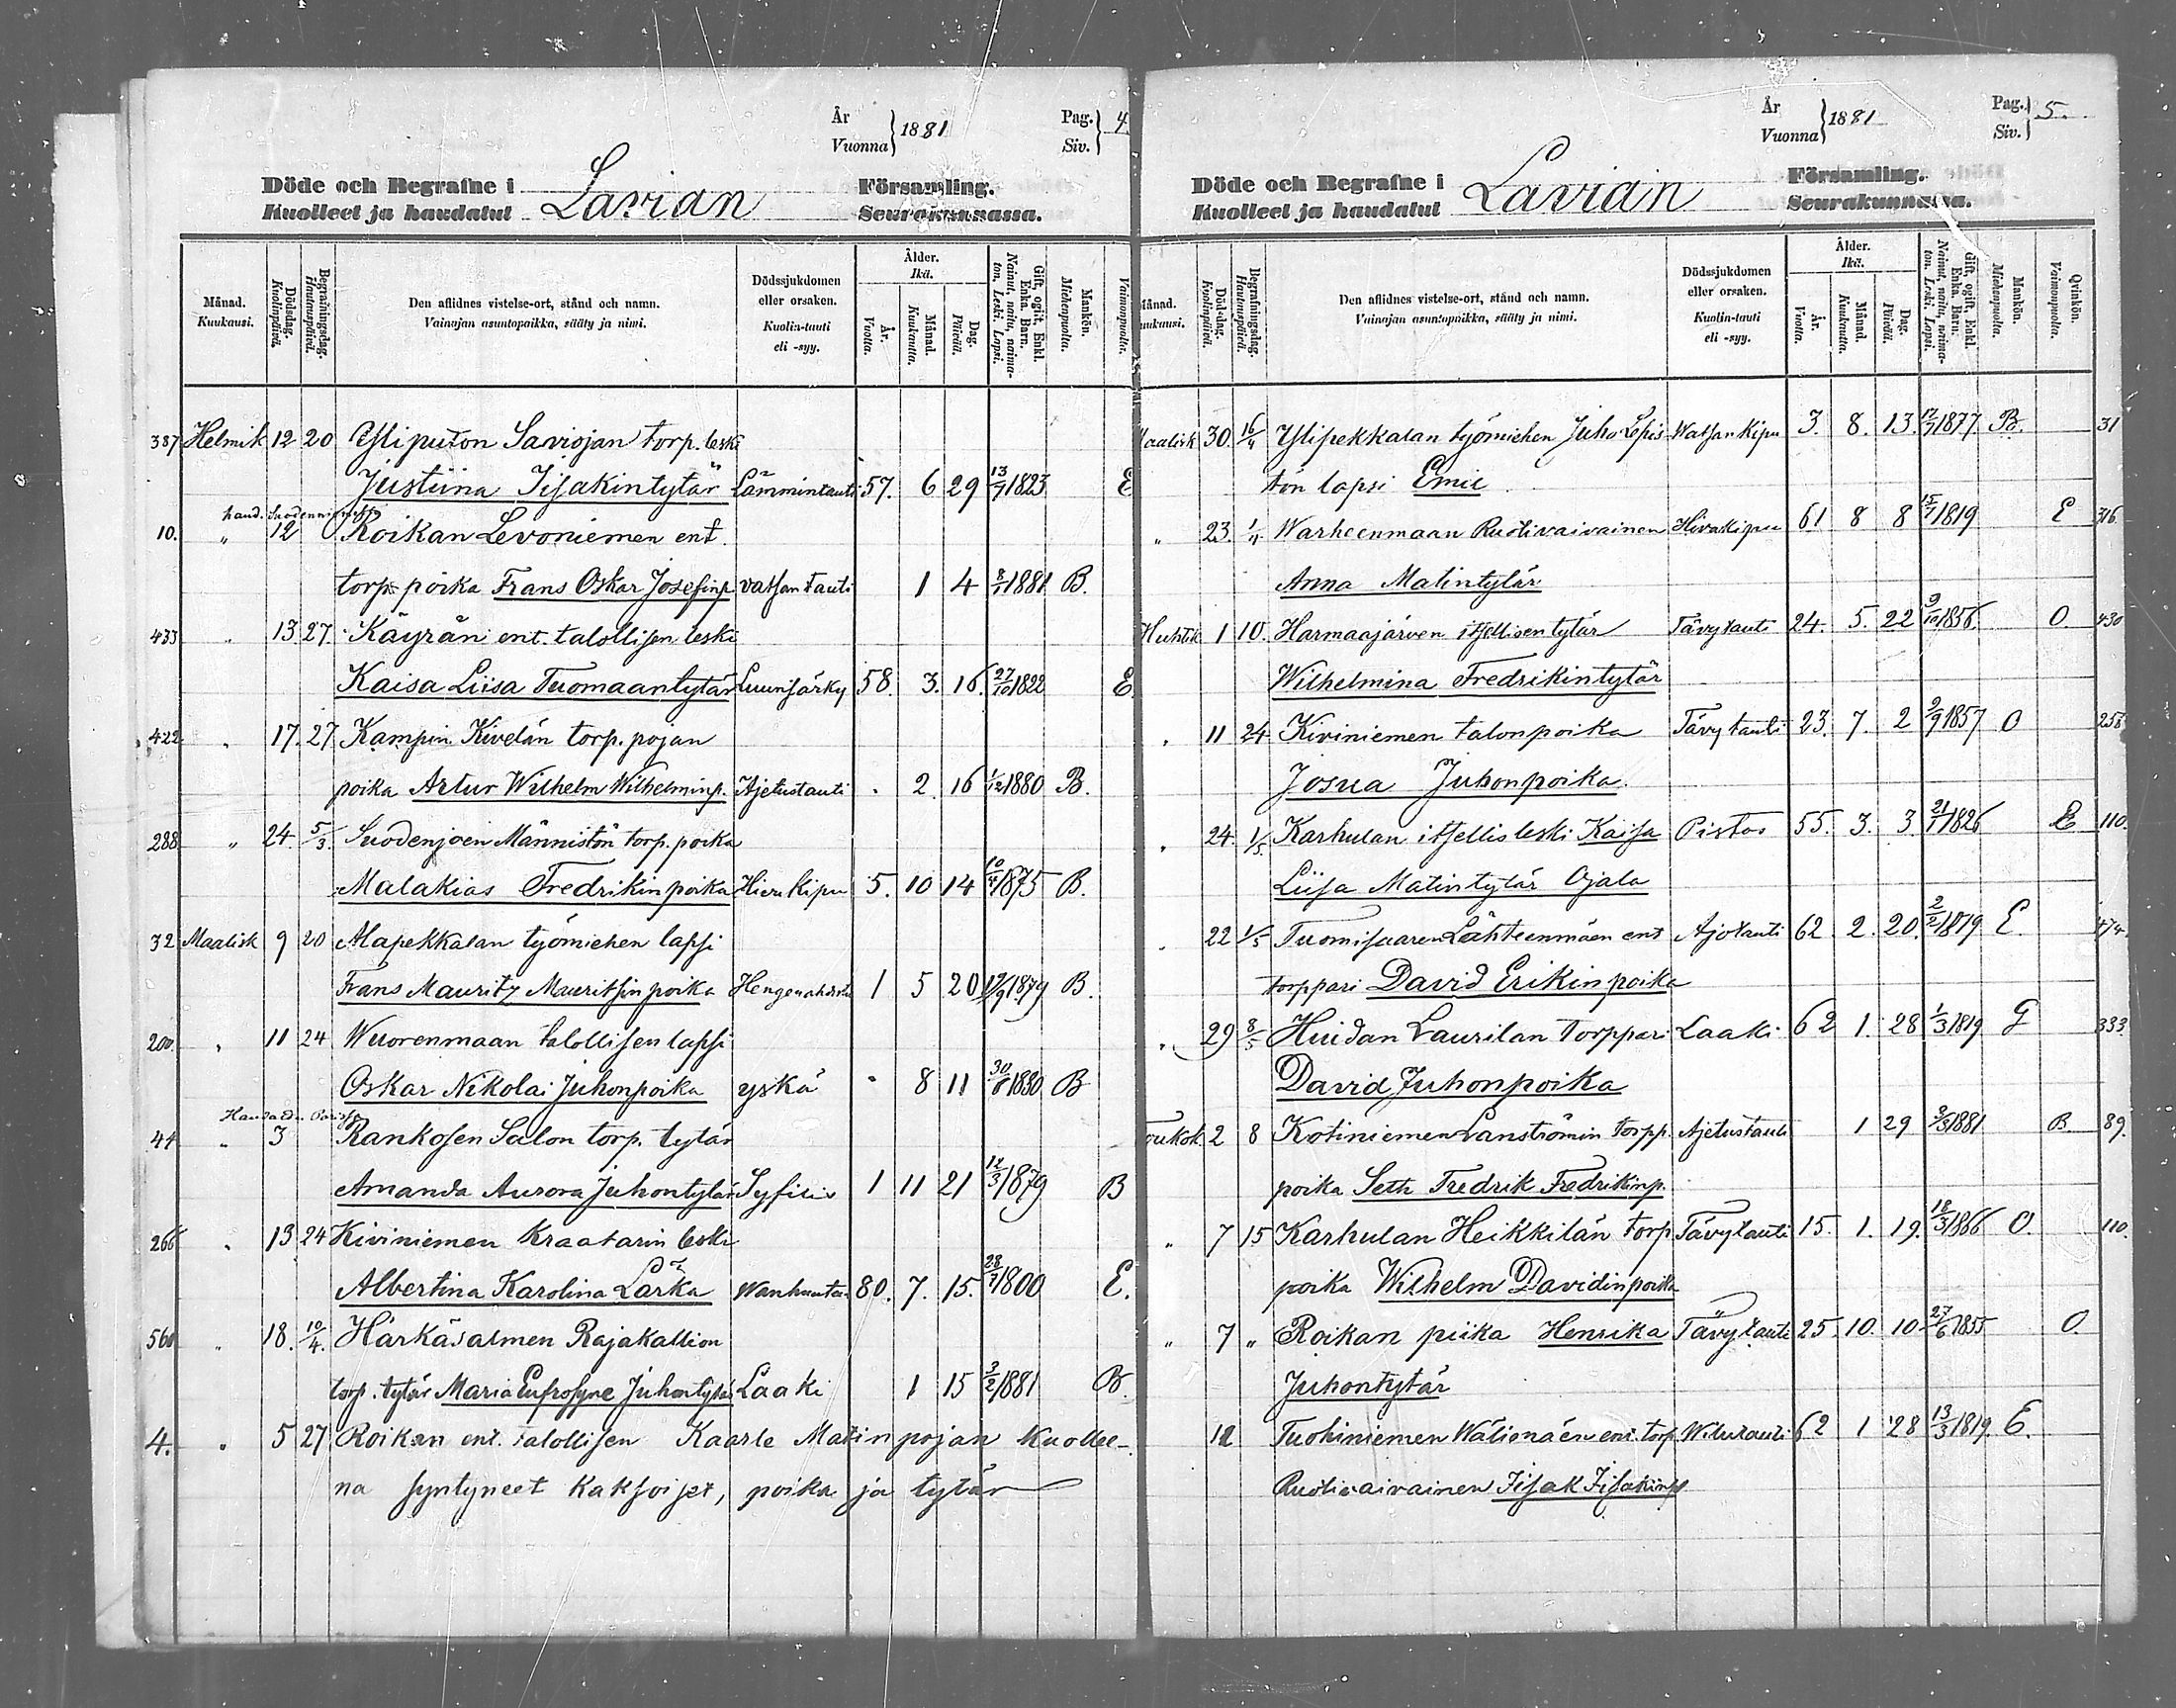 År
Vuonna } 1881
Pag.
Siv. } 4
Döde och Begrafne i Lavian Församling.
Kuolleet ja haudatut Seurakunnassa.
Månad. Kuukausi.
Dödsdag. Kuolinpäivä.
Begrafningsdag. Hautauspäivä.
Den aflidnes vistelse-ort, stånd och namn.
Vainajan asuntopaikka, sääty ja nimi.
Dödssjukdomen eller orsaken.
Kuolin-tauti eli -syy.
Ålder. Ikä.
År. Vuotta.
Månad. Kuukautta.
Dag. Päivää.
Gift, ogift, Enkl. Enka. Barn.
Nainut, naitu, naimaton, Leski. Lapsi.
Mankön. Miehenpuolta.
Vaimonpuolta.
387 Helmik 12 20 Yliputon Saviojan torp. leski
Justiina Iisakintytär Lämmintauti 57. 6 29 13/7 1823 E
haud. Suodenniemessä
10. " 12 Roikan Levoniemen ent.
torp. poika Frans Oskar Josefinp vatsan tauti 1 4 8/1 1881 B.
433 " 13 27. Käyrän ent. talollisen leski
Kaisa Liisa Tuomaantytär Luunsärky 58. 3. 16. 27/10 1822 E.
422 " 17. 27 Kampin Kivelän torp. pojan
poika Artur Wilhelm Wilhelminp. Ajetustauti " 2 16 1/12 1880 B.
288 " 24 5/3. Suodenjoen Männistön torp. poika
Malakias Fredrikinpoika Hieru kipu 5. 10 14 10/4 1875 B.
32 Maalisk 9 20 Alapekkalan työmiehen lapsi
Frans Mauritz Mauritsinpoika 1 5 20 19/9 1879 B.
200 " 11 24 Wuorenmaan talollisen lapsi
Oskar Nikolai Juhonpoika yskä " 8 11 30/6 1880 B
Haudattu Porissa
44 " 3 Rankosen Salon torp. tytär
Amanda Aurora Juhontytär Syfilis 1 11 21 12/3 1879 B
266 " 13 24 Kiviniemen kraatarin leski
Albertina Karolina Lärka Wanhuutta 80. 7. 15. 28/7 1800 E.
560 " 18. 10/4. Härkäsalmen Rajakallion
torp. tytär Maria Eufrosyne Juhontytär Laaki 1 15 3/2 1881 B.
4. " 5 27 Roikan ent. talollisen Kaarle Matin pojan kuollee-
na syntyneet kaksoiset, poika ja tytär
År
Vuonna } 1881
Pag.
Siv. } 5.
Döde och Begrafne i Lavian Församling.
Kuolleet ja haudatut Seurakunnassa.
Månad. Kuukausi.
Dödsdag. Kuolinpäivä.
Begrafningsdag. Hautauspäivä.
Den aflidnes vistelse-ort, stånd och namn.
Vainajan asuntopaikka, sääty ja nimi.
Dödssjukdomen eller orsaken.
Kuolin-tauti eli -syy.
Ålder. Ikä.
År. Vuotta.
Månad. Kuukautta.
Dag. Päivää.
Gift, ogift, Enkl. Enka. Barn.
Nainut, naitu, naimaton. Leski. Lapsi.
Mankön. Miehenpuolta.
Qvinkön. Vaimonpuolta.
Maalisk 30. 16/4 Ylipekkalan työmiehen Juho Lepis- Watsan kipu 3. 8. 13. 17/7 1877 B. 31
tön lapsi Emil
" 23. 1/4 Warheenmaan Ruotivaivainen 61 8 8 15/7 1819 E 316
Anna Matintytär
Huhtik 1 10. Harmaajärven itsellisen tytär Tävytauti 24. 5. 22 9/10 1856. O 430
Wilhelmina Fredrikintytär
" 11 24 Kiviniemen talonpoika Tävytauti 23. 7. 2 9/9 1857 O 258
Josua Juhonpoika.
" 24. 1/5. Karhulan itsellis leski Kaisa Pistos 55. 3. 3 21/1 1826 E 110.
Liisa Matintytär Ojala
" 22 1/5 Tuomisaaren Lähteenmäen ent Ajotauti 62 2. 20. 2/2 1819 E. 474
torppari David Erikinpoika
" 29 8/5 Huidan Laurilan torppari Laaki 62 1. 28 1/3 1819 G 333
David Juhonpoika
Toukok. 2 8 Kotiniemen Lanströmin torpp. Ajetustauti 1 29 3/3 1881 B. 89.
poika Seth Fredrik Fredrikinp.
" 7 15 Karhulan Heikkilän torp. Tävytauti 15. 1. 19. 18/3 1866 O. 110.
poika Wilhelm Davidinpoika
" 7 " Roikan piika Henrika Tävytauti 25. 10. 10 27/6 1855 O.
Juhontytär
12 Tuohiniemen ent. torp. 62 1 28 13/3 1819. E.
Ruotivaivainen Iisak Iisakinp